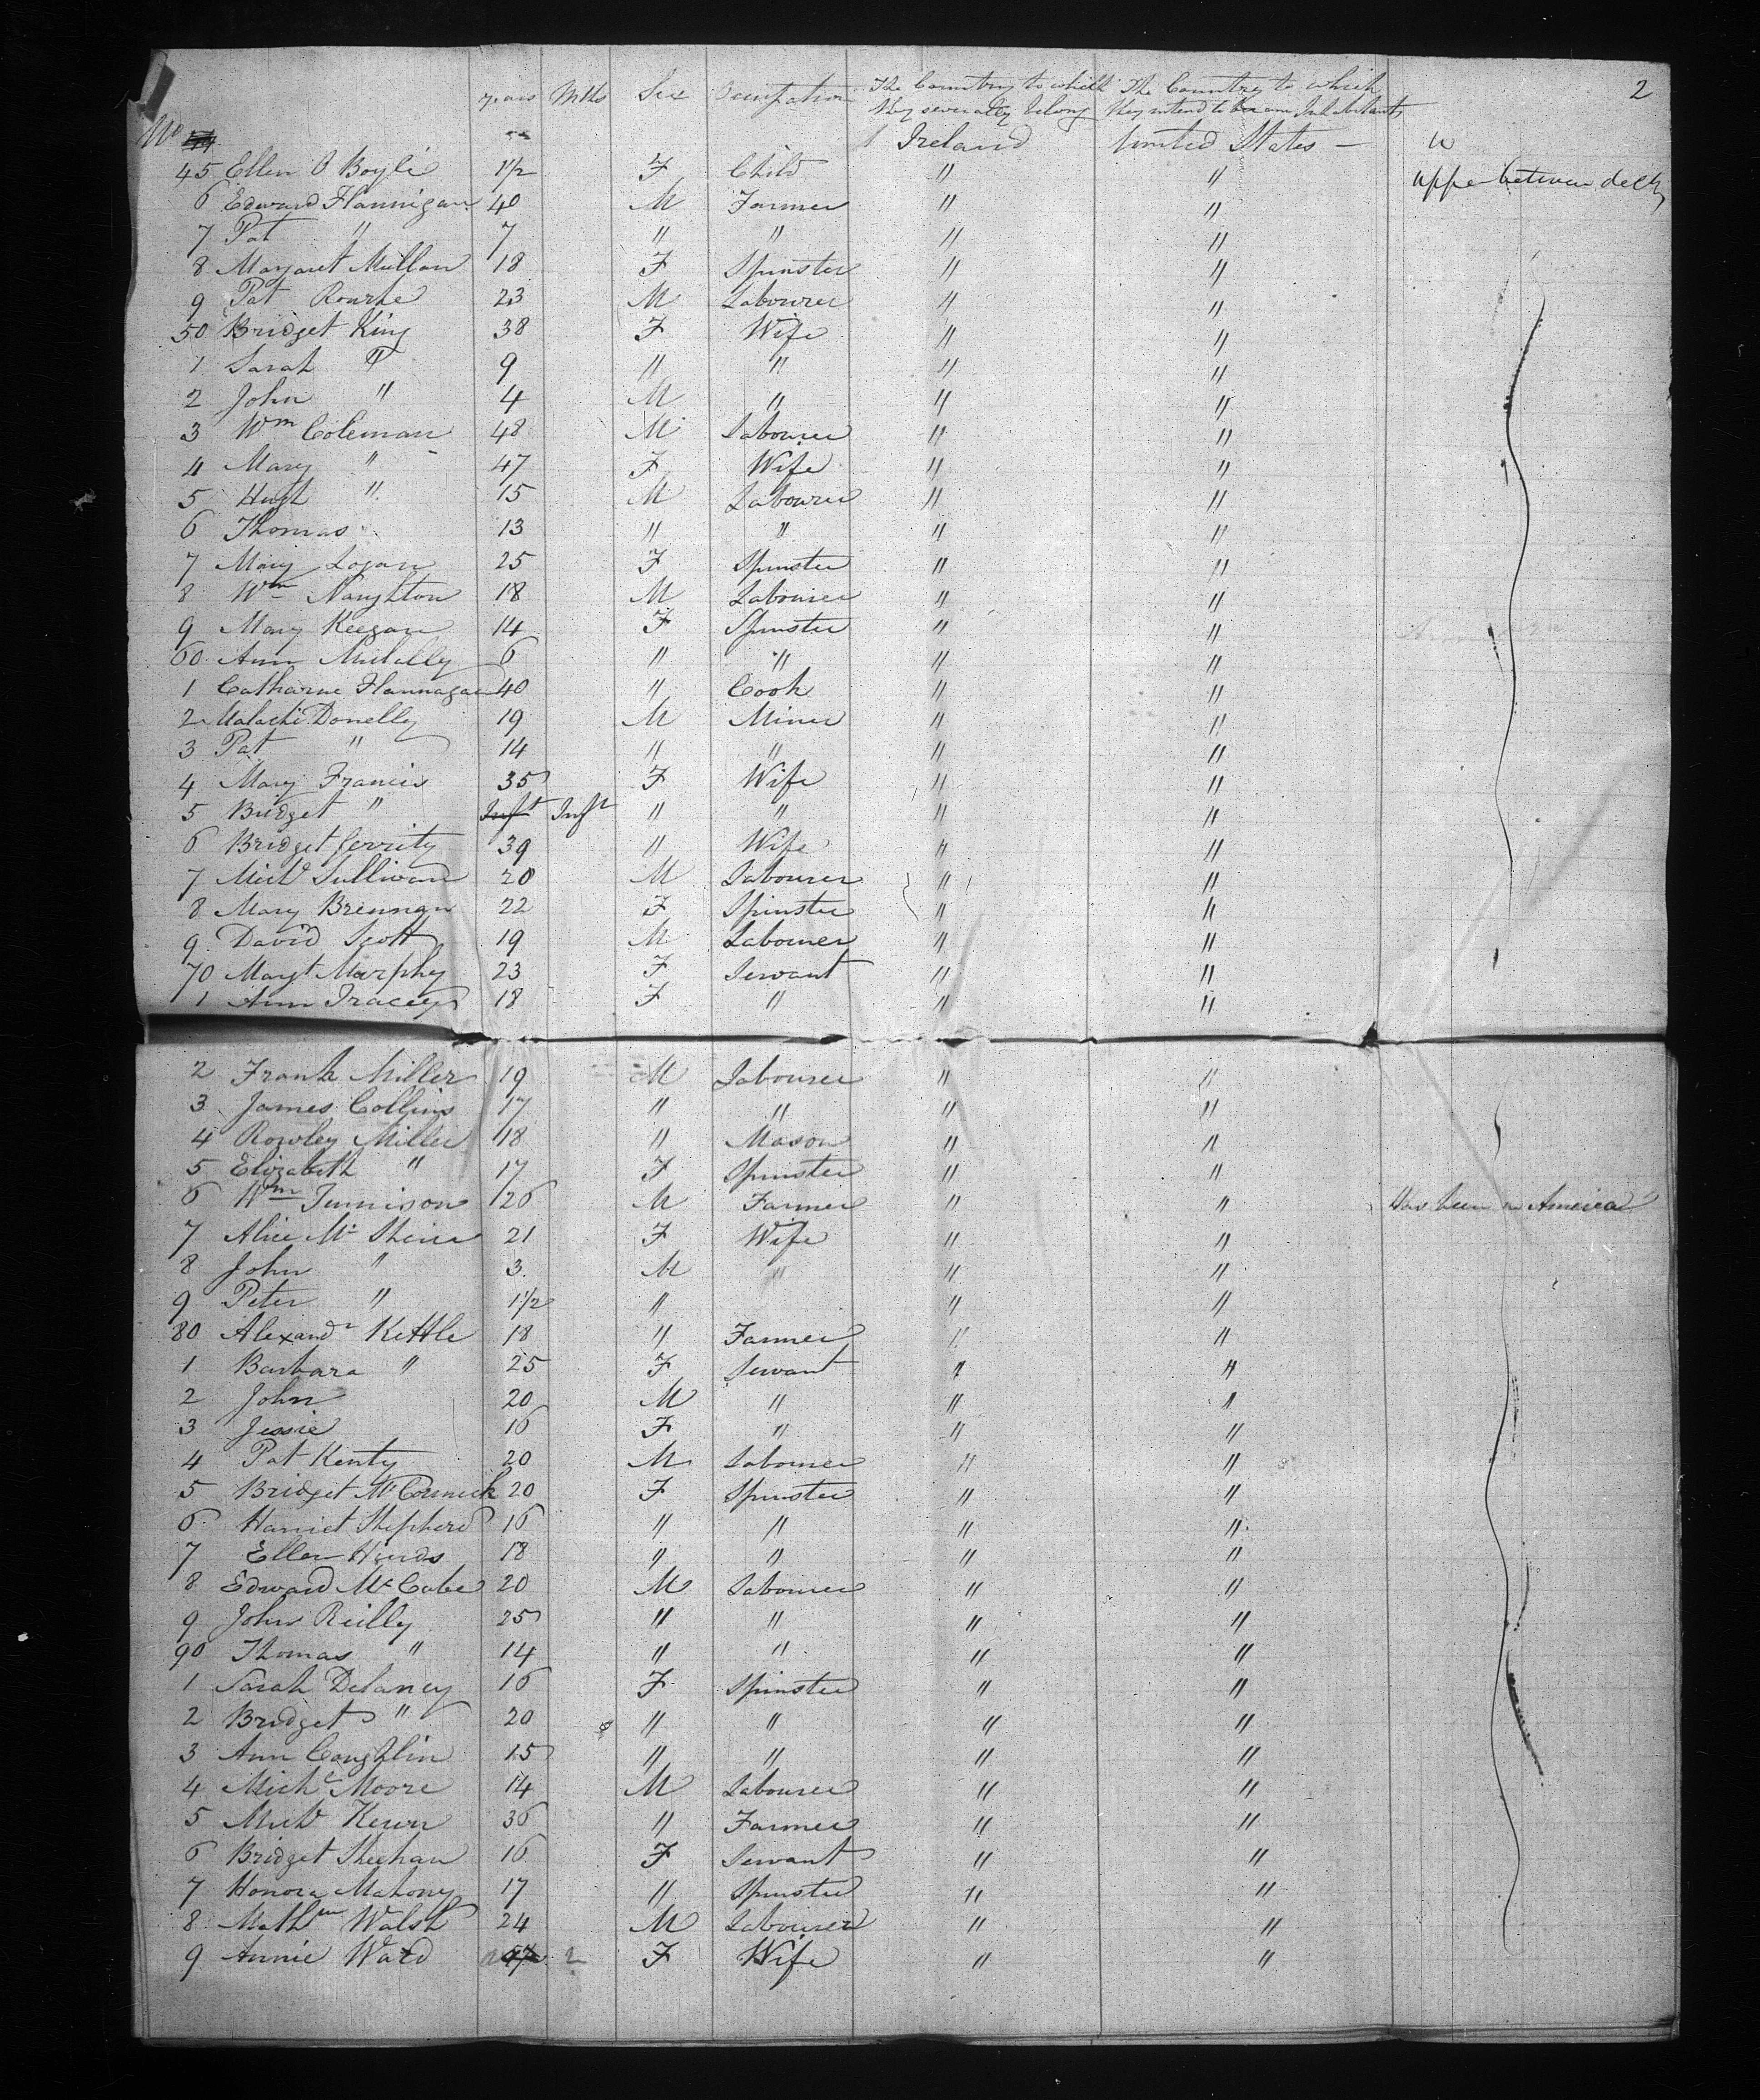 years Mths Sex Occupation The Country to which they severally belong The Country to which they intend to become Inhabitants 2
No 44 Ireland United States —
45 Ellen O Boyle 1 1/2 F Child " " upper between decks
6 Edward Flannigan 40 M Farmer " "
7 Pat " 7 " " " "
8 Margaret Mullan 18 F Spinster " "
9 Pat Rourke 23 M Labourer " "
50 Bridget King 38 F Wife " "
1 Sarah " 9 " " " "
2 John " 4 M " " "
3 Wm Coleman 48 M Labourer " "
4 Mary " 47 F Wife " "
5 Hugh " 15 M Labourer " "
6 Thomas 13 " " " "
7 Mary Logan 25 F Spinster " "
8 Wm Naughton 18 M Labourer " "
9 Mary Keegan 14 F Spinster " "
60 Ann 6 " " " "
1 Catharine Flannagan 40 " Cook " "
2 Malachi Donelly 19 M Miner " "
3 Pat " 14 " " " "
4 Mary Francis 35 F Wife " "
5 Bridget " Inft Inft " " " "
6 Bridget Gerrity 39 " Wife " "
7 Michl Sullivan 20 M Labourer " "
8 Mary Brennan 22 F Spinster " "
9 David Scott 19 M Labourer " "
70 Margt Murphy 23 F Servant " "
1 Ann Tracey 18 F " " "
2 Frank Miller 19 M Labourer " "
3 James Collins 17 " " " "
4 Rowley Miller 18 " Mason " "
5 Elizabeth " 17 F Spinster " "
6 Wm 26 M Farmer " " Has been in America
7 Alice Mc 21 F Wife " "
8 John " 3 M " " "
9 Peter " 1 1/2 " " "
80 Alexandr Kettle 18 " Farmer " "
1 Barbara " 25 F Servant " "
2 John 20 M " " "
3 Jessie 16 F " " "
4 Pat Kenty 20 M Labourer " "
5 Bridget McCormick 20 F Spinster " "
6 Harriet Shepherd 16 " " " "
7 Ellen Hinds 18 " " " "
8 Edward McCabe 20 M Labourer " "
9 John Reilly 25 " " " "
90 Thomas " 14 " " " "
1 Sarah Delaney 16 F Spinster " "
2 Bridget " 20 " " " "
3 Ann Coughlin 15 " " " "
4 Michl Moore 14 M Labourer " "
5 Michl 36 " Farmer " "
6 Bridget Sheehan 16 F Servant " "
7 Honora Mahony 17 " Spinster " "
8 Walsh 24 M Labourer " "
9 Annie Ward F Wife " "